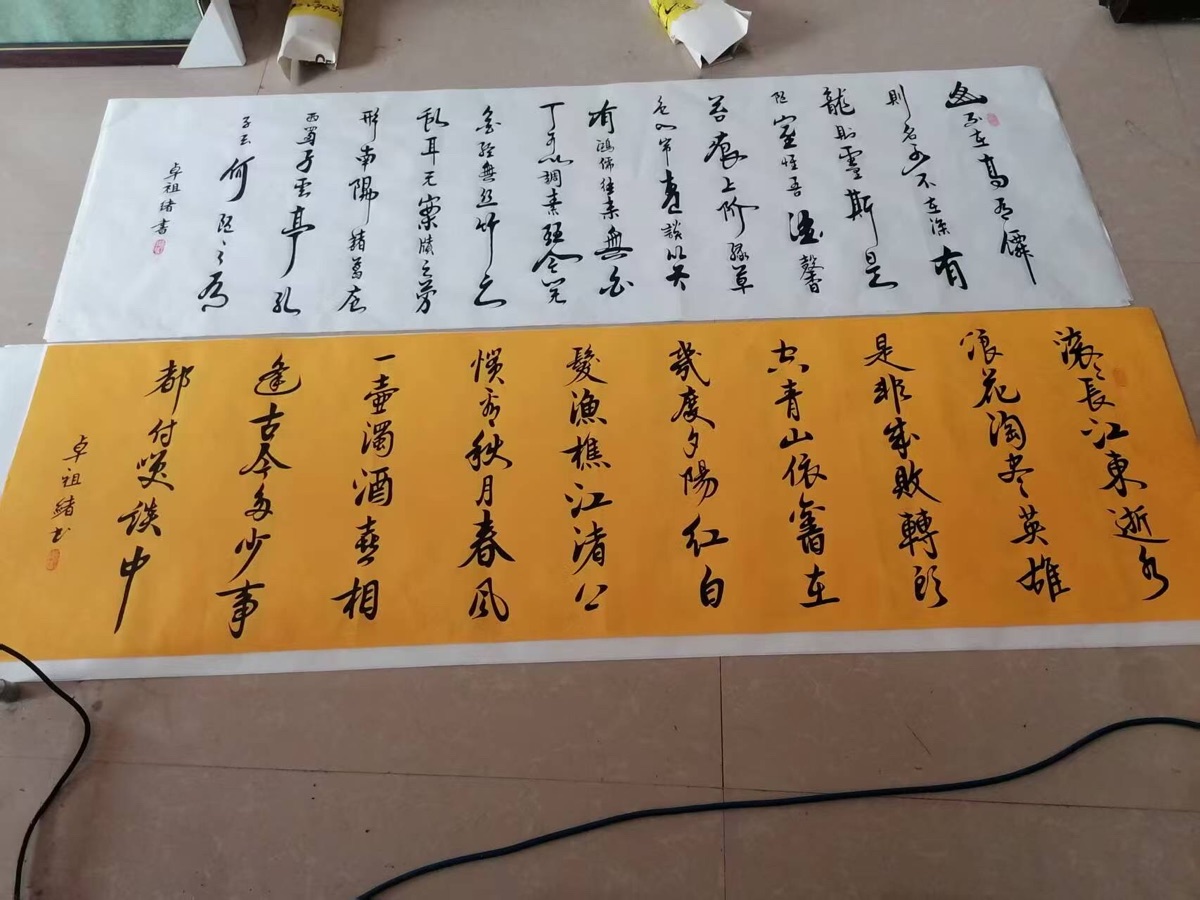 山不在高有僊
則名水不在深有
龍則靈斯是
陋室惟吾德馨
苔痕上阶緑草
色入帘青談笑
有鴻儒往来無白
丁可以調素琴阅
金经無丝竹之
乱耳无案牍之劳
形南陽諸葛庐
西蜀子雲亭孔
子云何陋之有
卓祖绪書
滚滚長江東逝水
浪花淘尽英雄
是非成败轉头
空青山依舊在
幾度夕陽红白
髮漁樵江渚上
惯看秋月春风
一壶濁酒喜相
逢古今多少事
都付笑談中
卓祖绪书